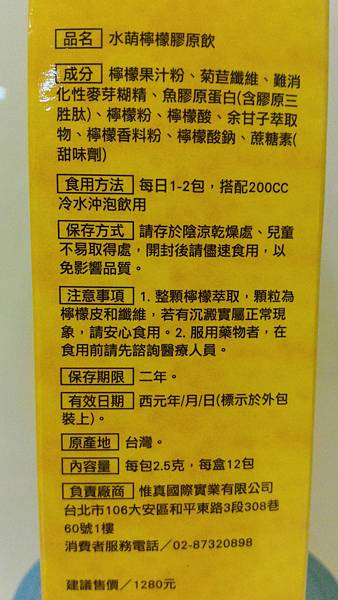 品名 水萌檸檬膠原飲
成分 檸檬果汁粉、菊苣纖維、難消
化性麥芽糊精、魚膠原蛋白(含膠原三
胜肽)、檸檬粉、檸檬酸、余甘子萃取
物、檸檬香料粉、檸檬酸鈉、蔗糖素(
甜味劑)
食用方法 每日1-2包，搭配200CC
冷水沖泡飲用
保存方式 請存於陰涼乾燥處、兒童
不易取得處，開封後請儘速食用，以
免影響品質。
注意事項 1. 整顆檸檬萃取，顆粒為
檸檬皮和纖維，若有沉澱實屬正常現
象，請安心食用。2. 服用藥物者，在
食用前請先諮詢醫療人員。
保存期限 二年。
有效日期 西元年/月/日(標示於外包
裝上)。
原產地 台灣。
內容量 每包2.5克，每盒12包
負責廠商 惟真國際實業有限公司
台北市106大安區和平東路3段308巷
60號1樓
消費者服務電話／02-87320898
建議售價／1280元